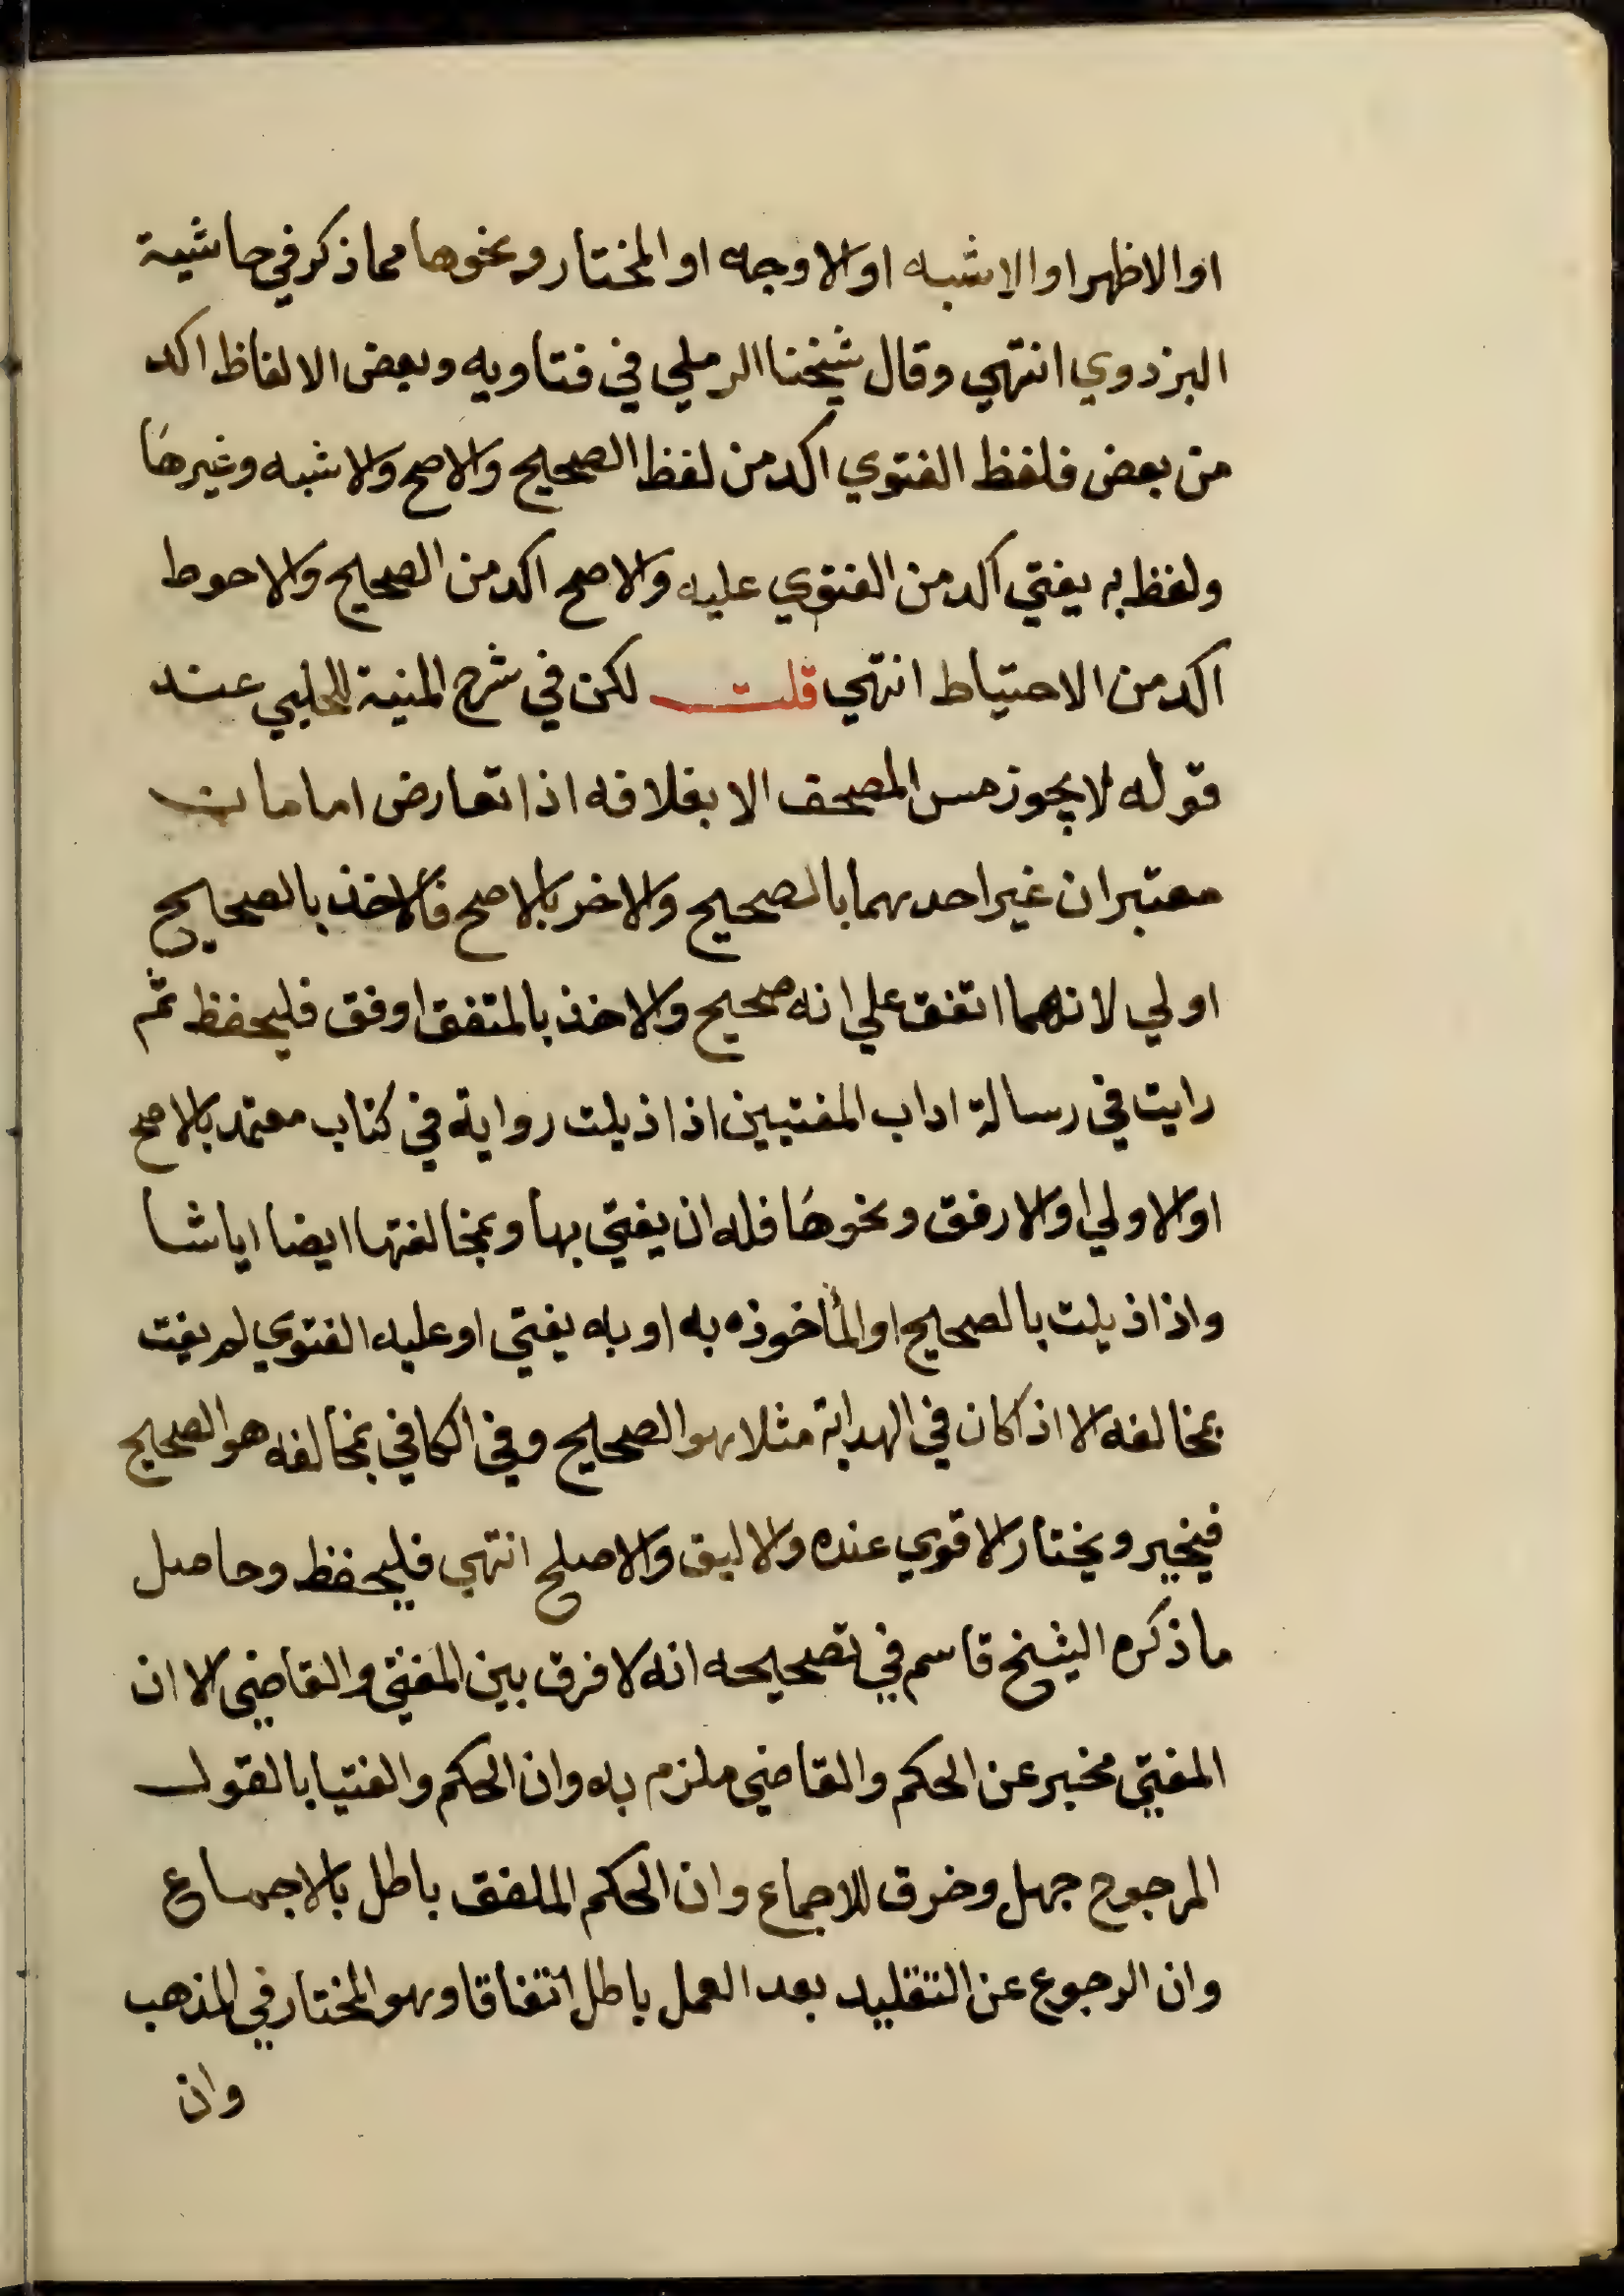 او الاظهر او الاشبه او الاوجه او المختار ونحوها مما ذكر في حاشية
البزدوي انتهي وقال شيخنا الرملي في فتاويه وبعض الالفاظ اكد
من بعض فلفظ الفتوي اكد من لفظ الصحيح والاصح والاشبه وغيرها
ولفظ به يفتي اكد من الفتوي عليه والاصح اكد من الصحيح والاحوط
اكد من الاحتياط انتهي قلت لكن في شرح المنية للحلبي عند
قوله لا يجوز مس المصحف الا بغلافه اذا تعارض امامان
معتبران غير احدهما بالصحيح والاخر بالاصح فالاخذ بالصحيح
اولي لانهما اتفق علي انه صحيح والاخذ بالمتفق اوفق فليحفظ ثم
رايت في رسالة اداب المفتيين اذا ذيلت رواية في كتاب معتمد بالاصح
او الاولي او الارفق ونحوها فله ان يفتي بها وبمخالفتها ايضا ايا شا
واذا ذيلت بالصحيح او المأخوذه به او به يفتي او عليه الفتوي لم يفت
بمخالفه الا اذا كان في الهداية مثلا هو الصحيح وفي الكافي بمخالفه هو الصحيح
فيخير ويختار الاقوي عنده والاليق والاصلح انتهي فليحفظ وحاصل
ما ذكره الشيخ قاسم في تصحيحه انه لا فرق بين المفتي والقاضي الا ان
المفتي مخبر عن الحكم والقاضي ملزم به وان الحكم والفتيا بالقول
المرجوح جهل وخرق للاجماع وان الحكم الملفق باطل بالاجماع
وان الرجوع عن التقليد بعد العمل باطل اتفاقا وهو المختار في المذهب
وان